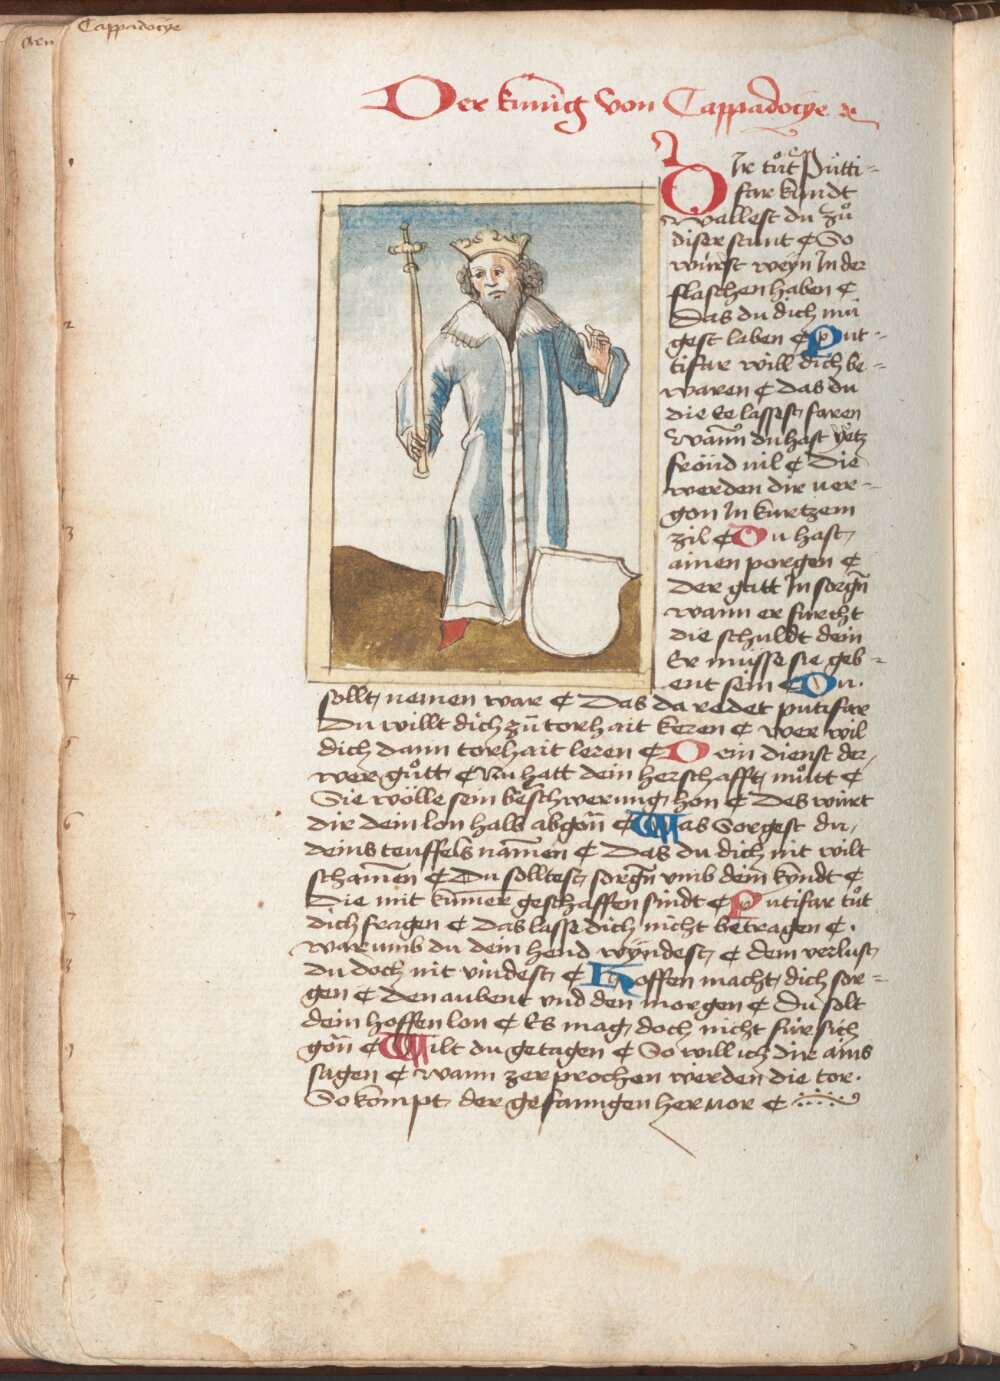 Cappadocye
Der kunig von Cappadocye
Dir tůt Putti-
far kundt
Wallest du zů
diser stunt ¢ So
würst weyn In der
flaschen haben ¢
Das du dich mü
gest laben ¢ Put-
tifar will dich be-
waren ¢ das du
die Ee lassest faren
Wann du hast yetz
fröud vil ¢ Die
werden dir ver-
gon In kurtzem
zil ¢ Du hast
ainen porgen ¢
Der gatt In sorgn
wann er fürcht
die schuldt dein
Er müsse sie geb-
ent sein ¢ Du
sollt nemen war ¢ Das da redet putifar
Du willt dich zů torhait keren ¢ wer wil
dich dann torhait leren ¢ Dein dienst der
wer gůtt ¢ Nu hatt dein herschafft můtt ¢
Sie wölle sein beschwerung hon ¢ Des würt
dir dein lon halb abgon ¢ Was Sorgest du
deins teuffels namen ¢ Das du dich nit wilt
schamen ¢ Du solltest sorgn vmb dein kyndt ¢
Die mit kumer geschaffen sindt ¢ Putifar tůt
dich fragen ¢ Das lasse dich nicht betragen ¢
warumb du dein hend wyndest ¢ dem verlust
du doch nit vindest ¢ Hoffen macht dich sor-
gen ¢ Den aubent vnd den morgen ¢ Du solt
dein hoffen lon ¢ Es mag doch nicht für sich
gon ¢ Wilt du getagen ¢ So will ich dir ains
sagen ¢ Wann zerprochen werden die tor
So kompt der gefanngen her vor ¢
2
3
4
5
6
7
8
9